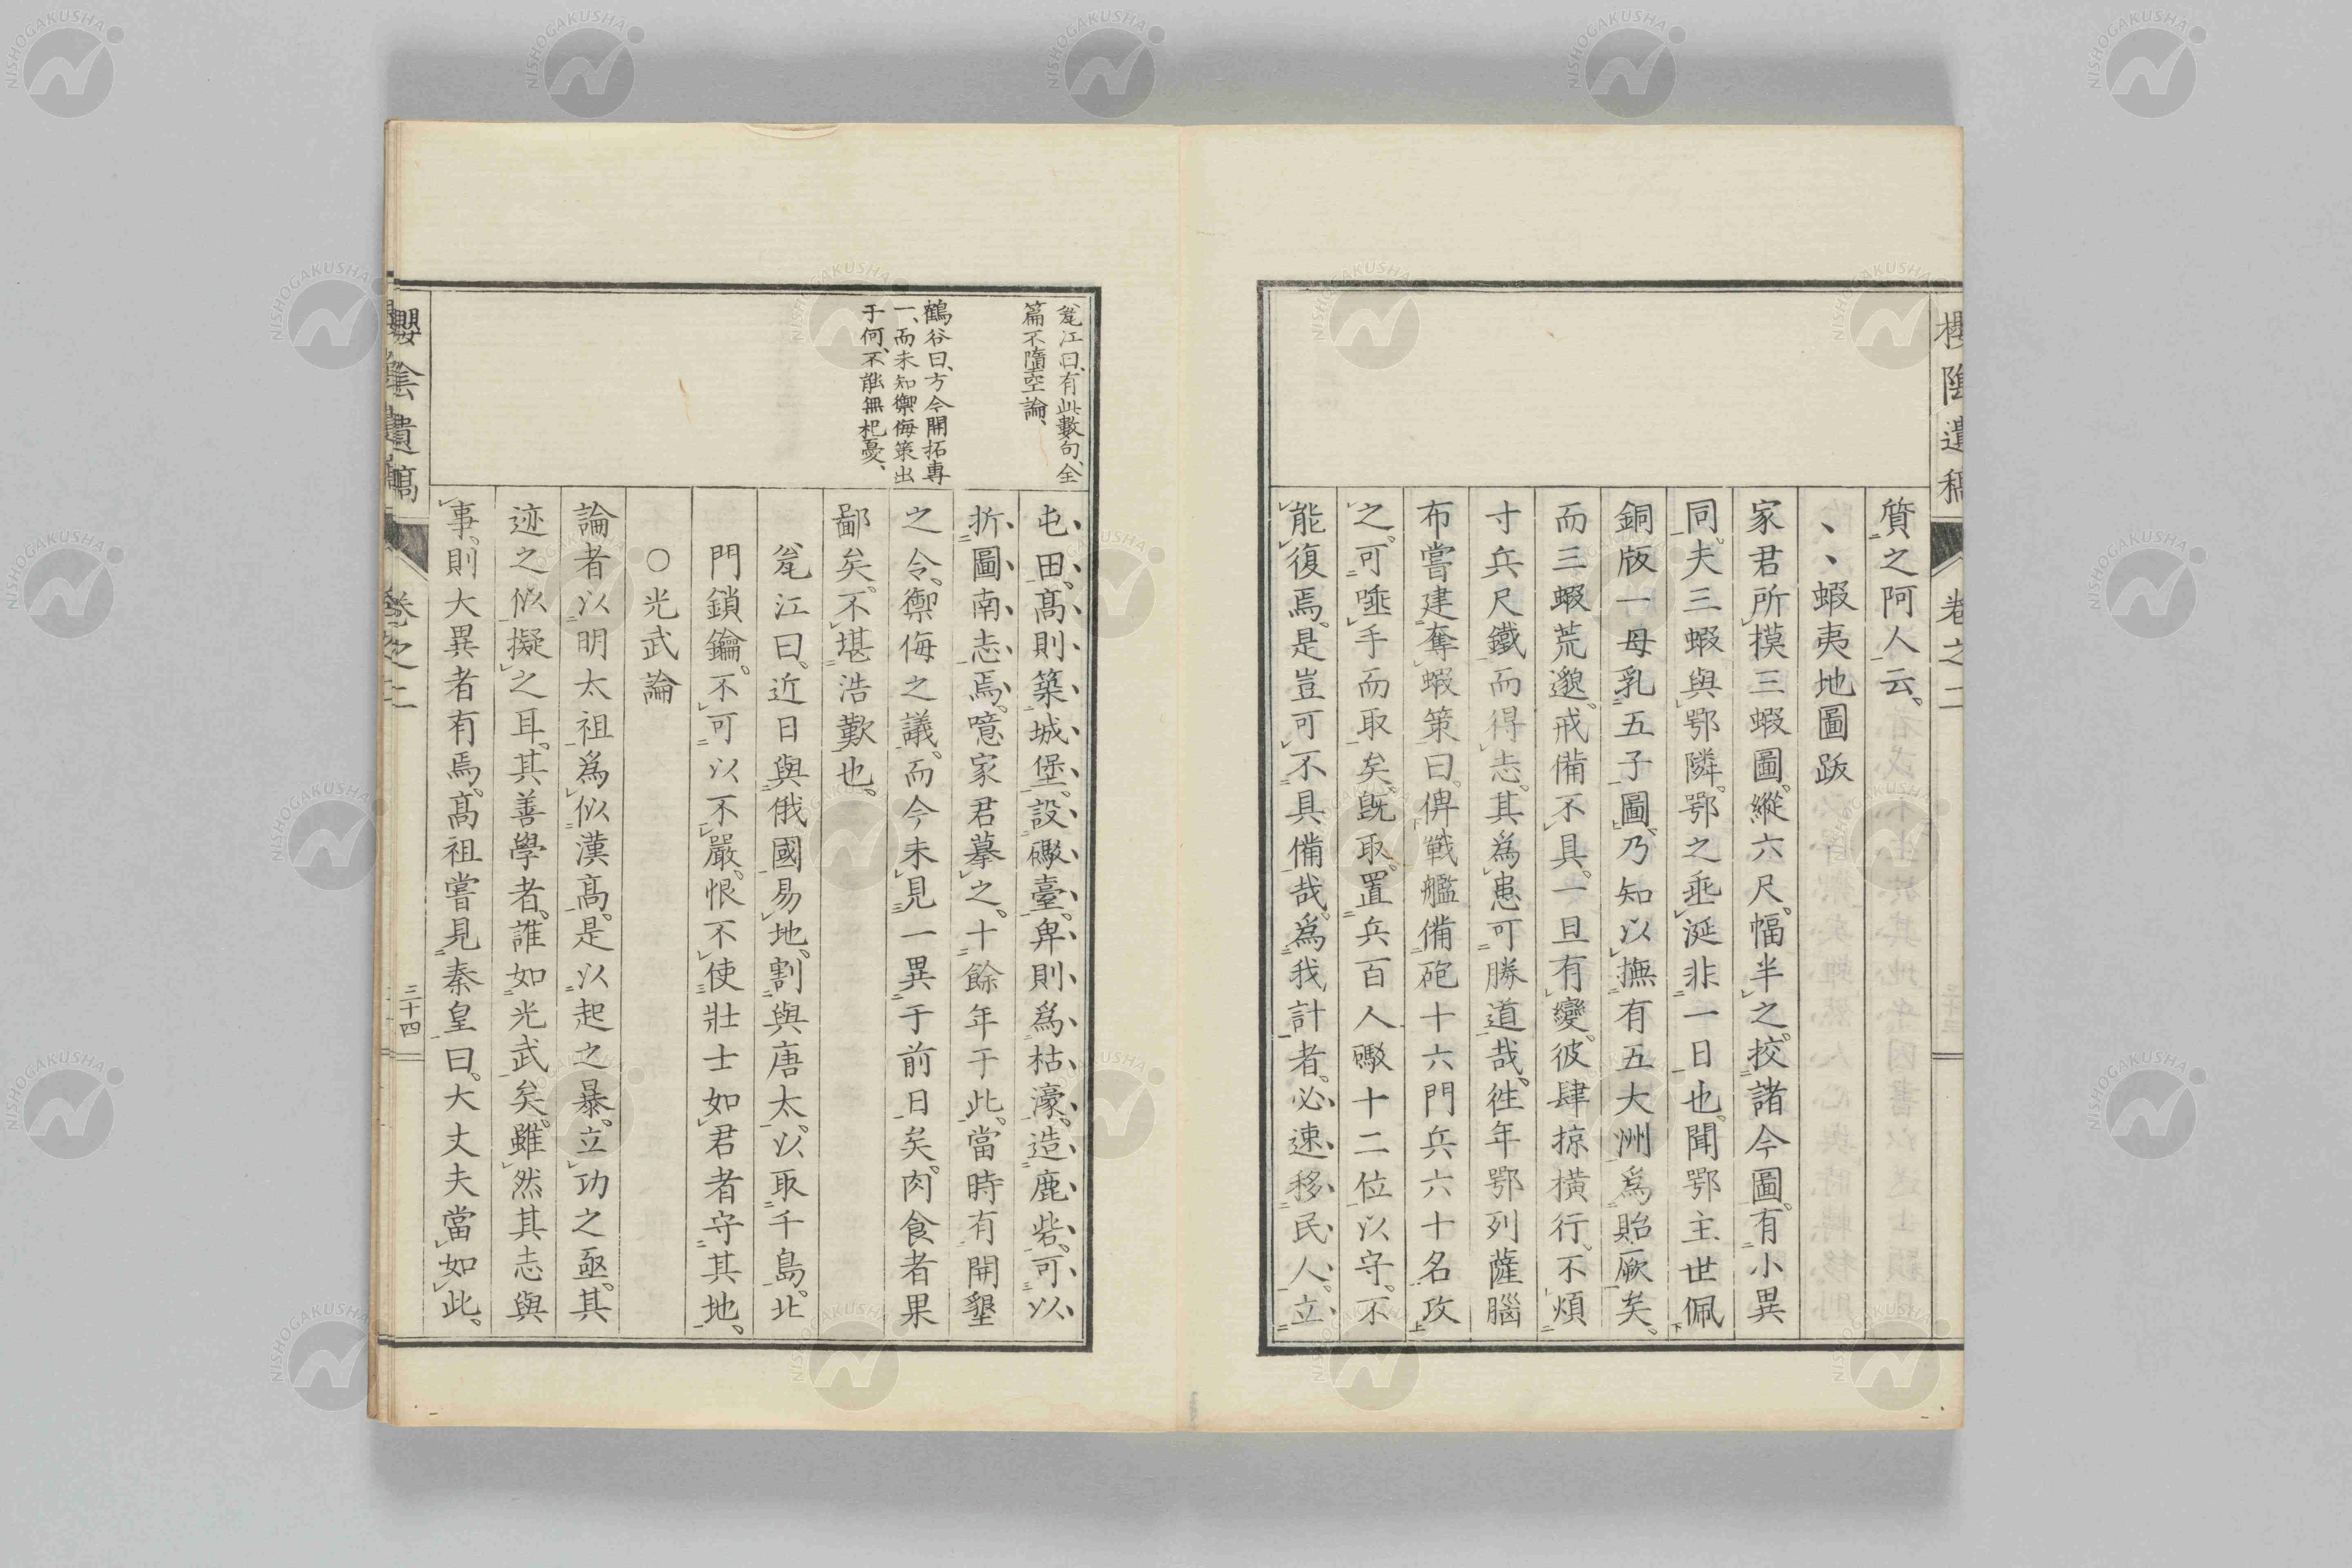 櫻陰遺稿
卷之二
質之阿人云。
、、蝦夷地圖跋
家君所摸三蝦圖。縱六尺。幅半之。挍諸今圖。有小異
同。夫三蝦與鄂隣。鄂之垂涎非一日也。聞鄂主世佩
銅版一母乳五子圖。乃知以撫有五大洲爲貽厥矣。
而三蝦荒邈。戒備不具。一旦有變。彼肆掠橫行。不煩
寸兵尺鐵而得志。其爲患可勝道哉。徃年鄂列薩腦
布嘗建奪蝦策曰。俾戰艦備砲十六門兵六十名攻
之。可唾手而取矣。既取。置兵百人礮十二位以守。不
能復焉。是豈可不具備哉。爲我計者。必速移民人。立
屯田。高則築城堡。設礮臺。卑則爲枯濠。造鹿砦。可以
折圖南志焉。噫家君摹之。十餘年于此。當時有開墾
之令。禦侮之議。而今未見一異于前日矣。肉食者果
鄙矣。不堪浩歎也。
瓮江曰。近日與俄國易地。割與唐太。以取千島。北
門鎖鑰。不可以不嚴。恨不使壯士如君者守其地。
〇光武論
論者以明太祖爲似漢高。是以起之暴。立功之亟。其
迹之似擬之耳。其善學者。誰如光武矣。雖然其志與
事。則大異者有焉。高祖嘗見秦皇曰。大丈夫當如此。
瓮江曰、有此數句、全
篇不墮空論、
鶴谷曰、方今開拓專
一、而未知禦侮策出
于何、不能無杞憂、
櫻陰遺稿
卷之二
三十四